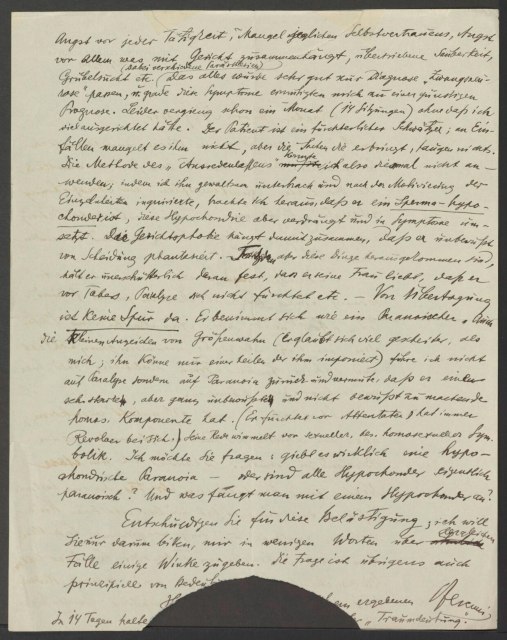 Angst vor jeder Tätigkeit, Mangel jeglichen Selbstvertrauens, Angst
vor allem was mit Gericht zusammenhängt, übertriebene Sauberkeit,
(dabei verschiedene Parästhesien)
Grübelsucht etc. (Das alles würde sehr gut zur Diagnose „Zwangsneu-
rose" passen, u. grade diese Symptome ermutigten mich zu einer günstigen
Prognose. Leider verging schon ein Monat (14 Sitzungen) ohne daß ich
viel ausgerichtet hätte. Der Patient ist ein fürchterlicher Schwätzer, an Ein-
fällen mangelt es ihm nicht, aber die Sachen die er bringt, taugen nichts.
Die Methode des „Ausredenlassens" konnte ich also diesmal nicht an-
wenden; indem ich ihn gewaltsam unterbrach und nach der Motivierung der
Einzelheiten inquirierte, brachte ich heraus, daß er ein Spermo-hypo-
chonder ist, diese Hypochondrie aber verdrängt und in Symptome um-
setzt. Die Gerichtsphobie hängt damit zusammen, daß er unbewußt
von Scheidung phantasiert. Trotzdem aber diese Dinge herausgekommen sind,
hält er unerschütterlich daran fest, daß er seine Frau liebt, daß er
vor Tabes, Paralyse sich nicht fürchtet etc. — Von Übertragung
ist keine Spur da. Er benimmt sich wie ein Paranoischer. Auch
die kleinen Anzeichen von Größenwahn (Er glaubt sich viel gescheiter, als
mich; ihn könne nur einer heilen der ihm imponiert) führe ich nicht
auf Paralyse sondern auf Paranoia zurück und vermute, daß er eine
sehr starke, aber ganz unbewußte und nicht bewußt zu machende
homos. Komponente hat. (Er fürchtet vor Attentaten, hat immer
Revolver bei sich.) Seine Rede wimmelt von sexueller, bes. homosexueller Sym-
bolik. Ich möchte Sie fragen: giebt es wirklich eine hypo-
chondrische Paranoia — oder sind alle Hypochonder eigentlich
paranoisch? Und was fängt man mit einem Hypochonder an?
Entschuldigen Sie für diese Belästigung; ich will
Sie nur darum bitten, mir in wenigen Worten über derartige
Fälle einige Winke zu geben. Die Frage ist übrigens auch
prinzipiell von
ergebenen Ferenczi
In 14 Tagen halte „Traumdeutung".